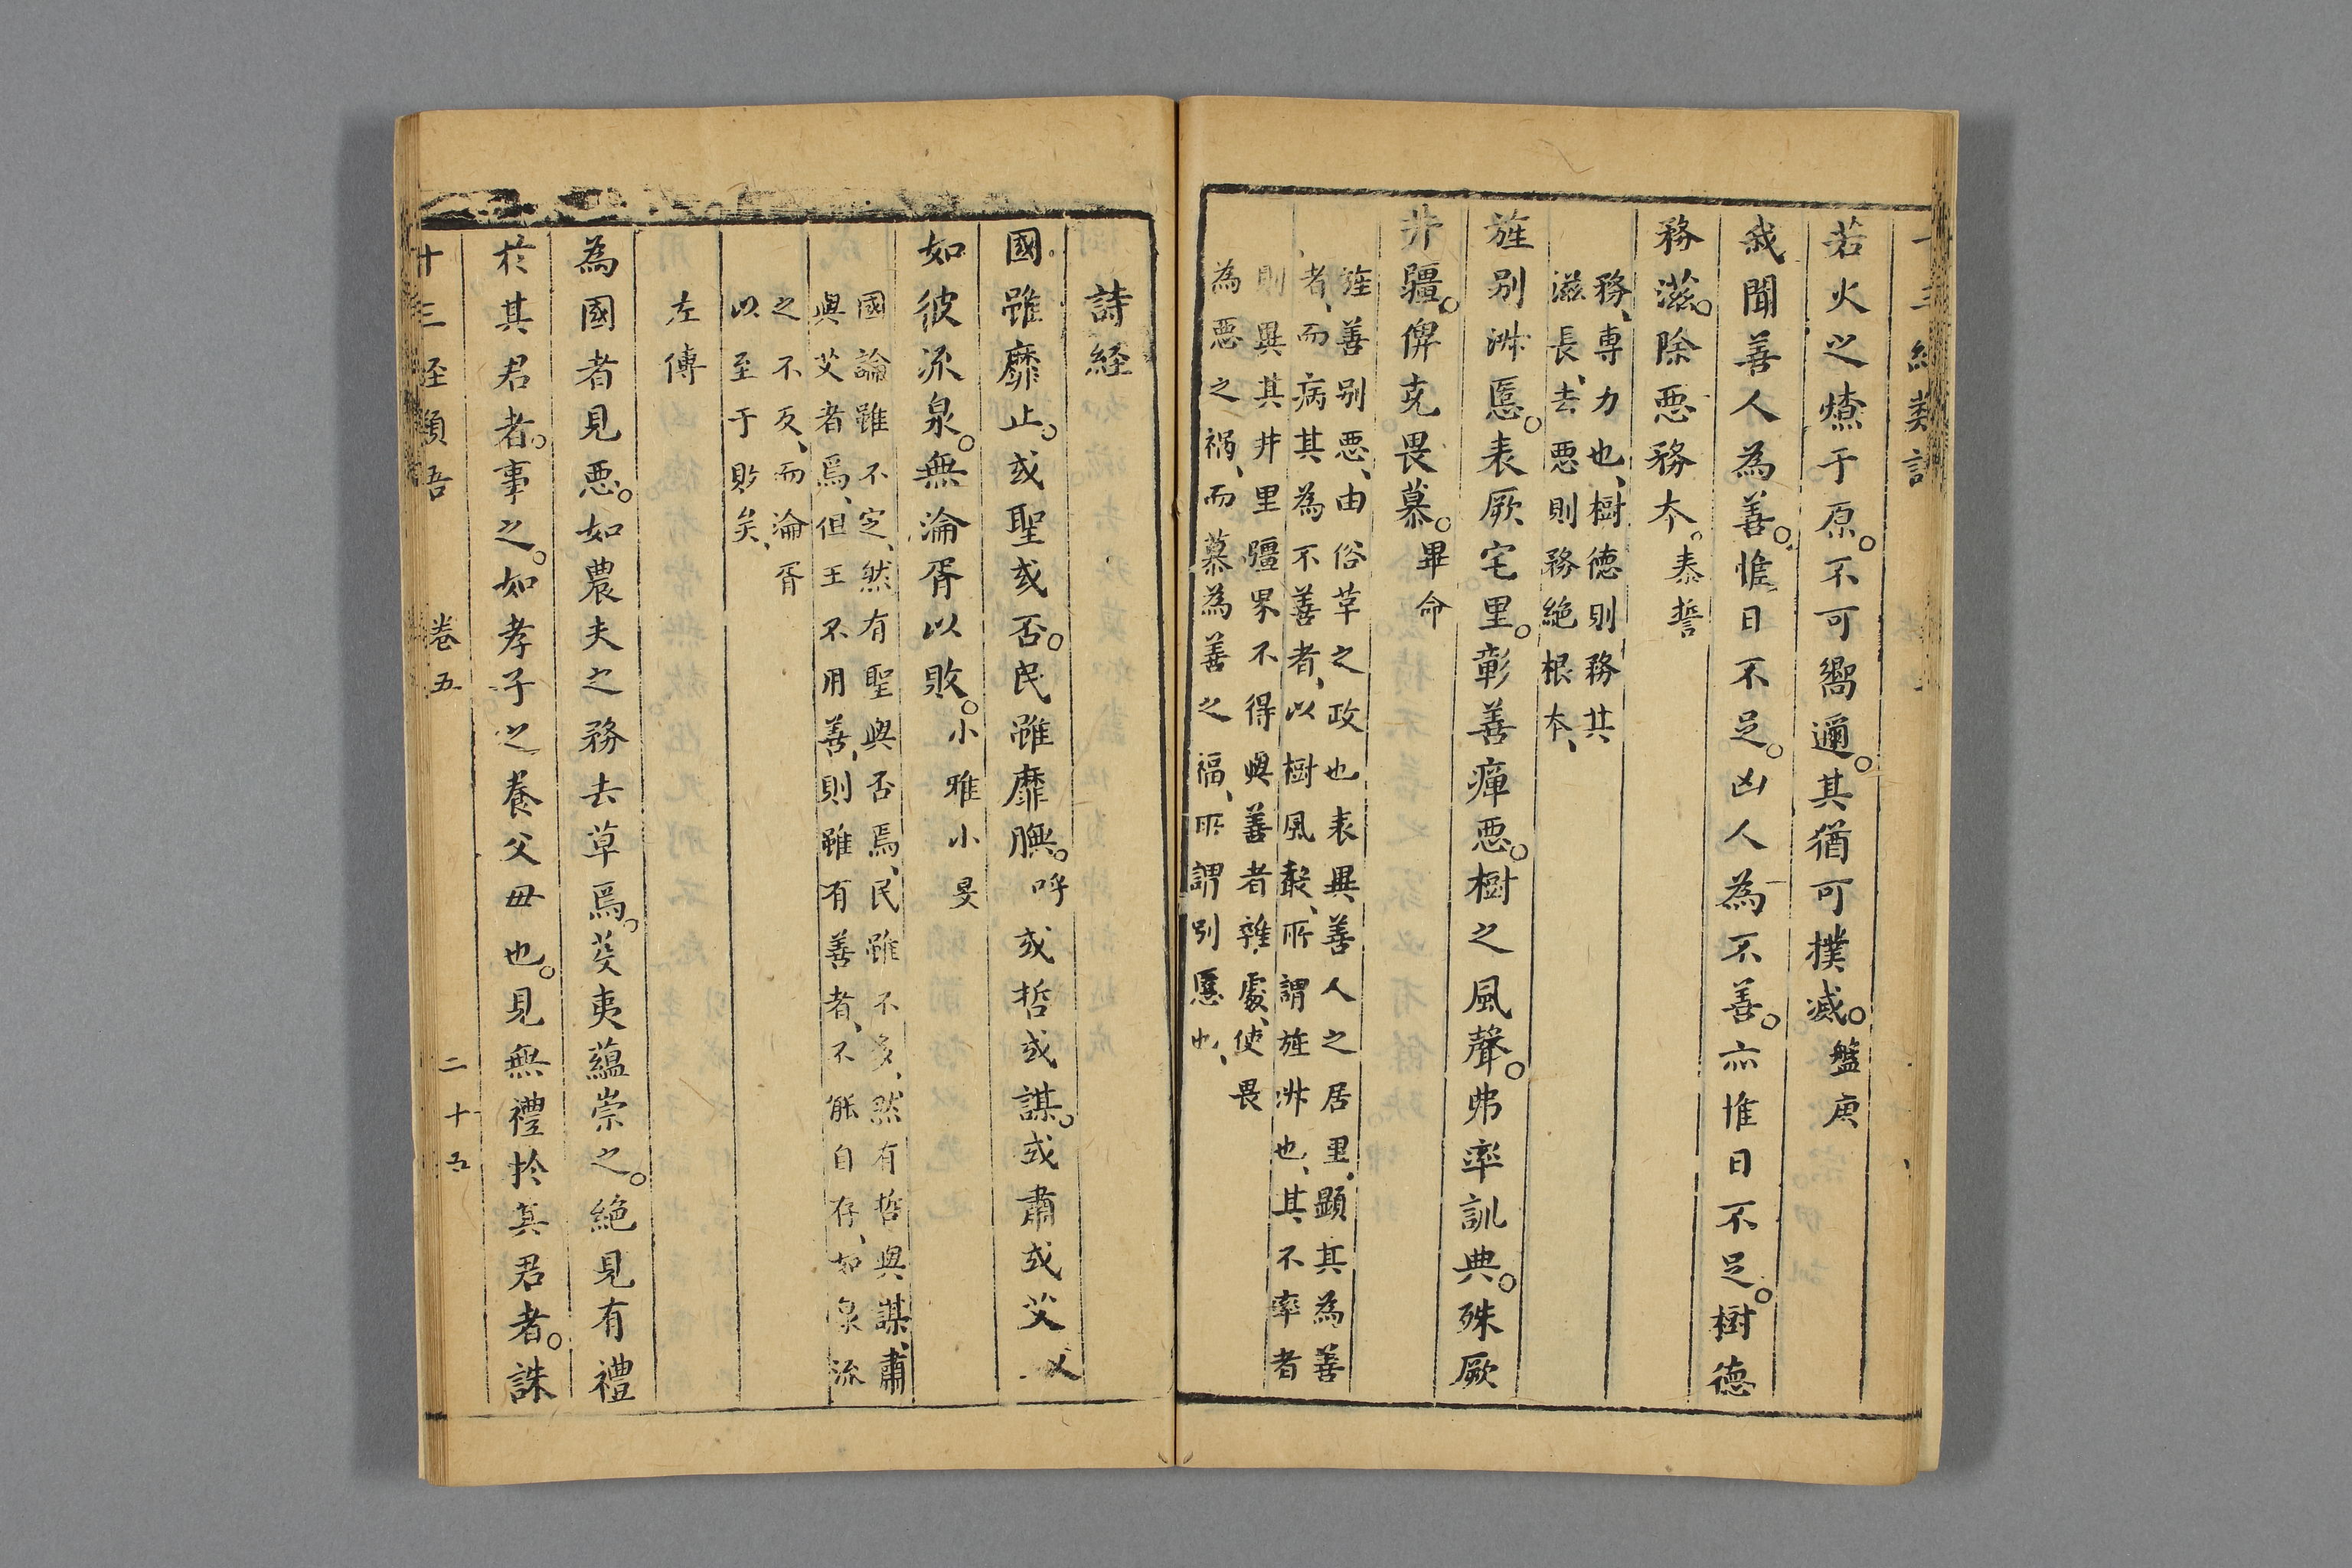 若火之燎于原。不可嚮邇。其猶可撲滅。盤庚
我聞善人為善。惟日不足。凶人為不善。亦惟日不足。樹德
務滋。除悪務夲。泰誓
務、專力也、樹德則務其
滋長、去悪則務絶根夲、
旌别淑慝。表厥宅里。彰善癉悪。樹之風聲。弗率訓典。殊厥
井疆。俾克畏慕。畢命
旌善别悪、由俗革之政也表異善人之居里、顯其為善
者、而病其為不善者、以樹風聲、所謂旌淑也、其不率者
則異其井里疆界不得與善者雜處、使畏
為悪之禍、而慕為善之福、所謂别慝也、
詩経
國雖靡止。或聖或否。民雖靡膴。呼或哲或謀。或肅或艾乂
如彼流泉。無淪胥以敗。小雅小旻
國論雖不定、然有聖與否焉、民雖不多、然有哲與謀、肅
與艾者焉、但王不用善、則雖有善者、不能自存、如泉流
之不反、而淪胥
以至于敗矣、
左傳
為國者見悪。如農夫之務去草焉。芟夷蘊崇之。絶見有禮
於其君者。事之。如孝子之養父母也。見無禮於其君者。誅
十三経類語 卷五 二十五